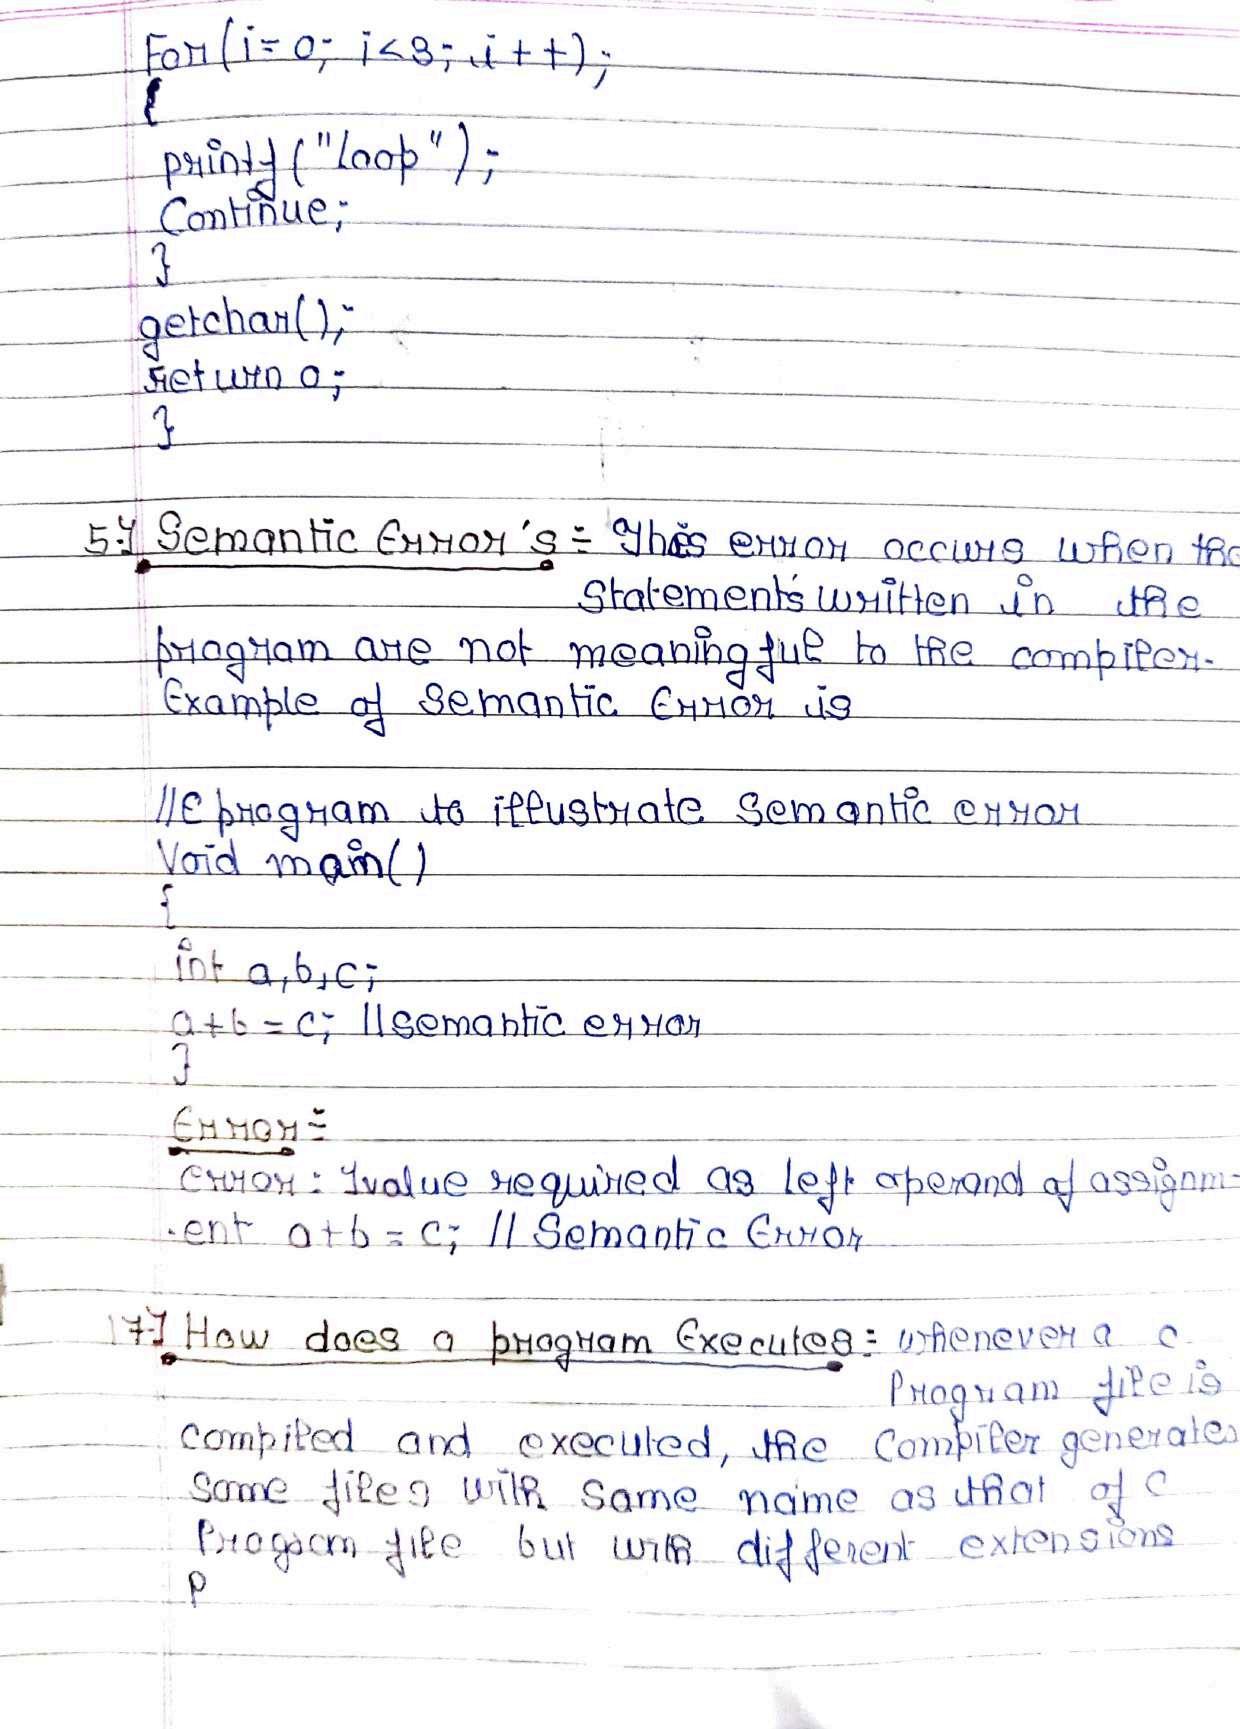 For(i=0; i<3; i++);
{
printf("loop");
Continue;
}
getchar();
return 0;
}
5.] Semantic Error's := This error occurs when the
statements written in the
program are not meaningful to the compiler.
Example of semantic Error is
//C program to illustrate Semantic error
Void main()
{
int a,b,c;
a+b=c; //semantic error
}
Error:=
error: lvalue required as left operand of assignm-
-ent a+b=c; // Semantic Error
17.] How does a program Executes:= whenever a c
Program file is
compiled and executed, the Compiler generates
some files with same name as that of C
Program file but with different extensions
P